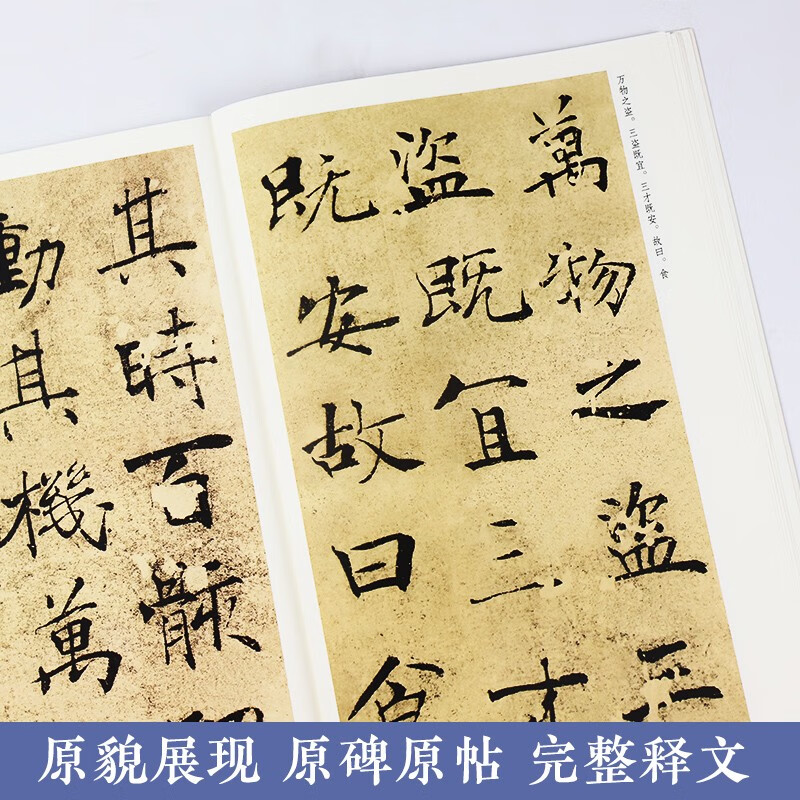 万物之盗。三盗既宜。三才既安。故曰。食
萬物之盜三
盜既冝三才
既安故曰食
其時百骸
動其機萬
原貌展现 原碑原帖 完整释文